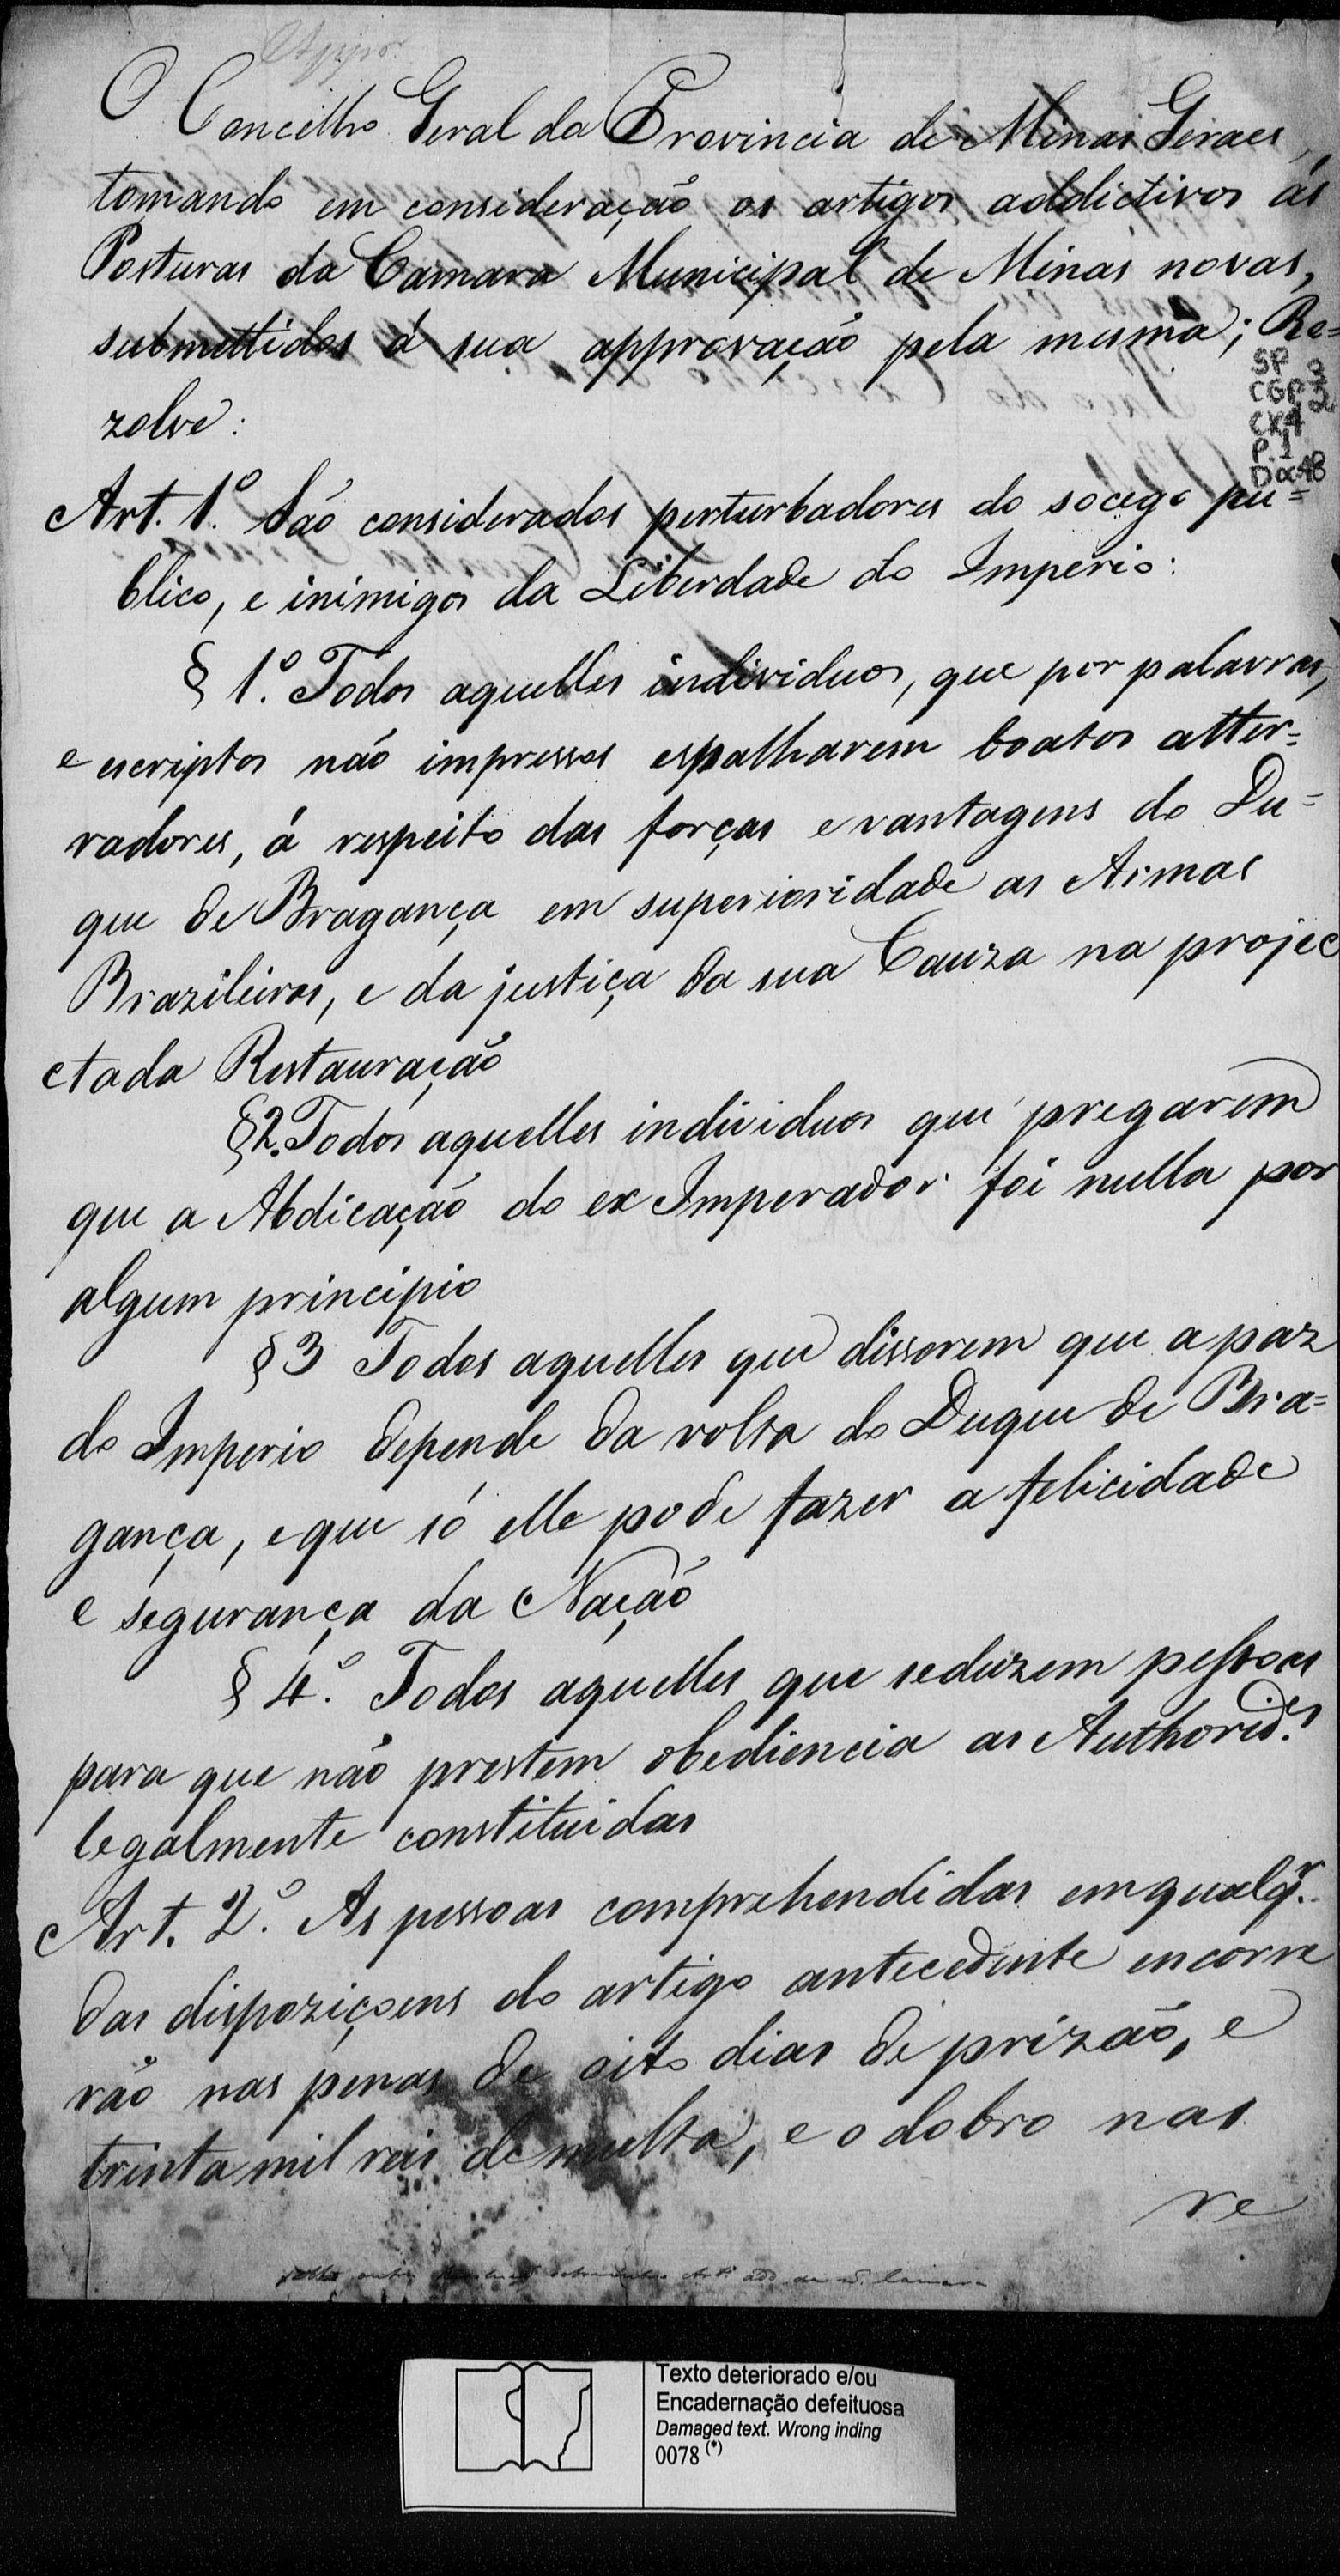 O Concelho Geral da Provincia de Minas Geraes,
tomando em consideração os artigos addictivos ás
Posturas da Camara Municipal de Minas novas,
submettidos á sua approvação pela mesma; Re=
SP
CGP
CX4
P.1
Doc48
zolve:
Art. 1º. São considerados perturbadores do socego pu=
blico, e inimigos da Liberdade do Imperio:
§ 1º. Todos aquelles individuos, que por palavras,
e escriptos não impressos espalharem boatos atter=
radores, á respeito das forças e vantagens do Du=
que de Bragança em superioridade as Armas
Brazileiras, e da justiça da sua Cauza na projec
ctada Restauração
§2. Todos aquelles individuos que pregarem
que a Abdicação do ex Imperador foi nulla por
algum principio
§3 Todos aquelles que disserem que a paz
do Imperio depende da volta do Duque de Bra=
gança, e que só elle pode fazer a felicidade
e segurança da Nação
§ 4º. Todos aquelles que seduzem pessoas
para que não prestem obediencia as Authorid.es
legalmente constituidas
Art. 2º. As pessoas comprehendidas em qualq.r
das dispoziçoens do artigo antecedente encorre
rão nas penas de oito dias de prizão, e
trinta mil reis de multa, e o dobro nas
re
Texto deteriorado e/ou
Encadernação defeituosa
Damaged text. Wrong inding
0078 (*)